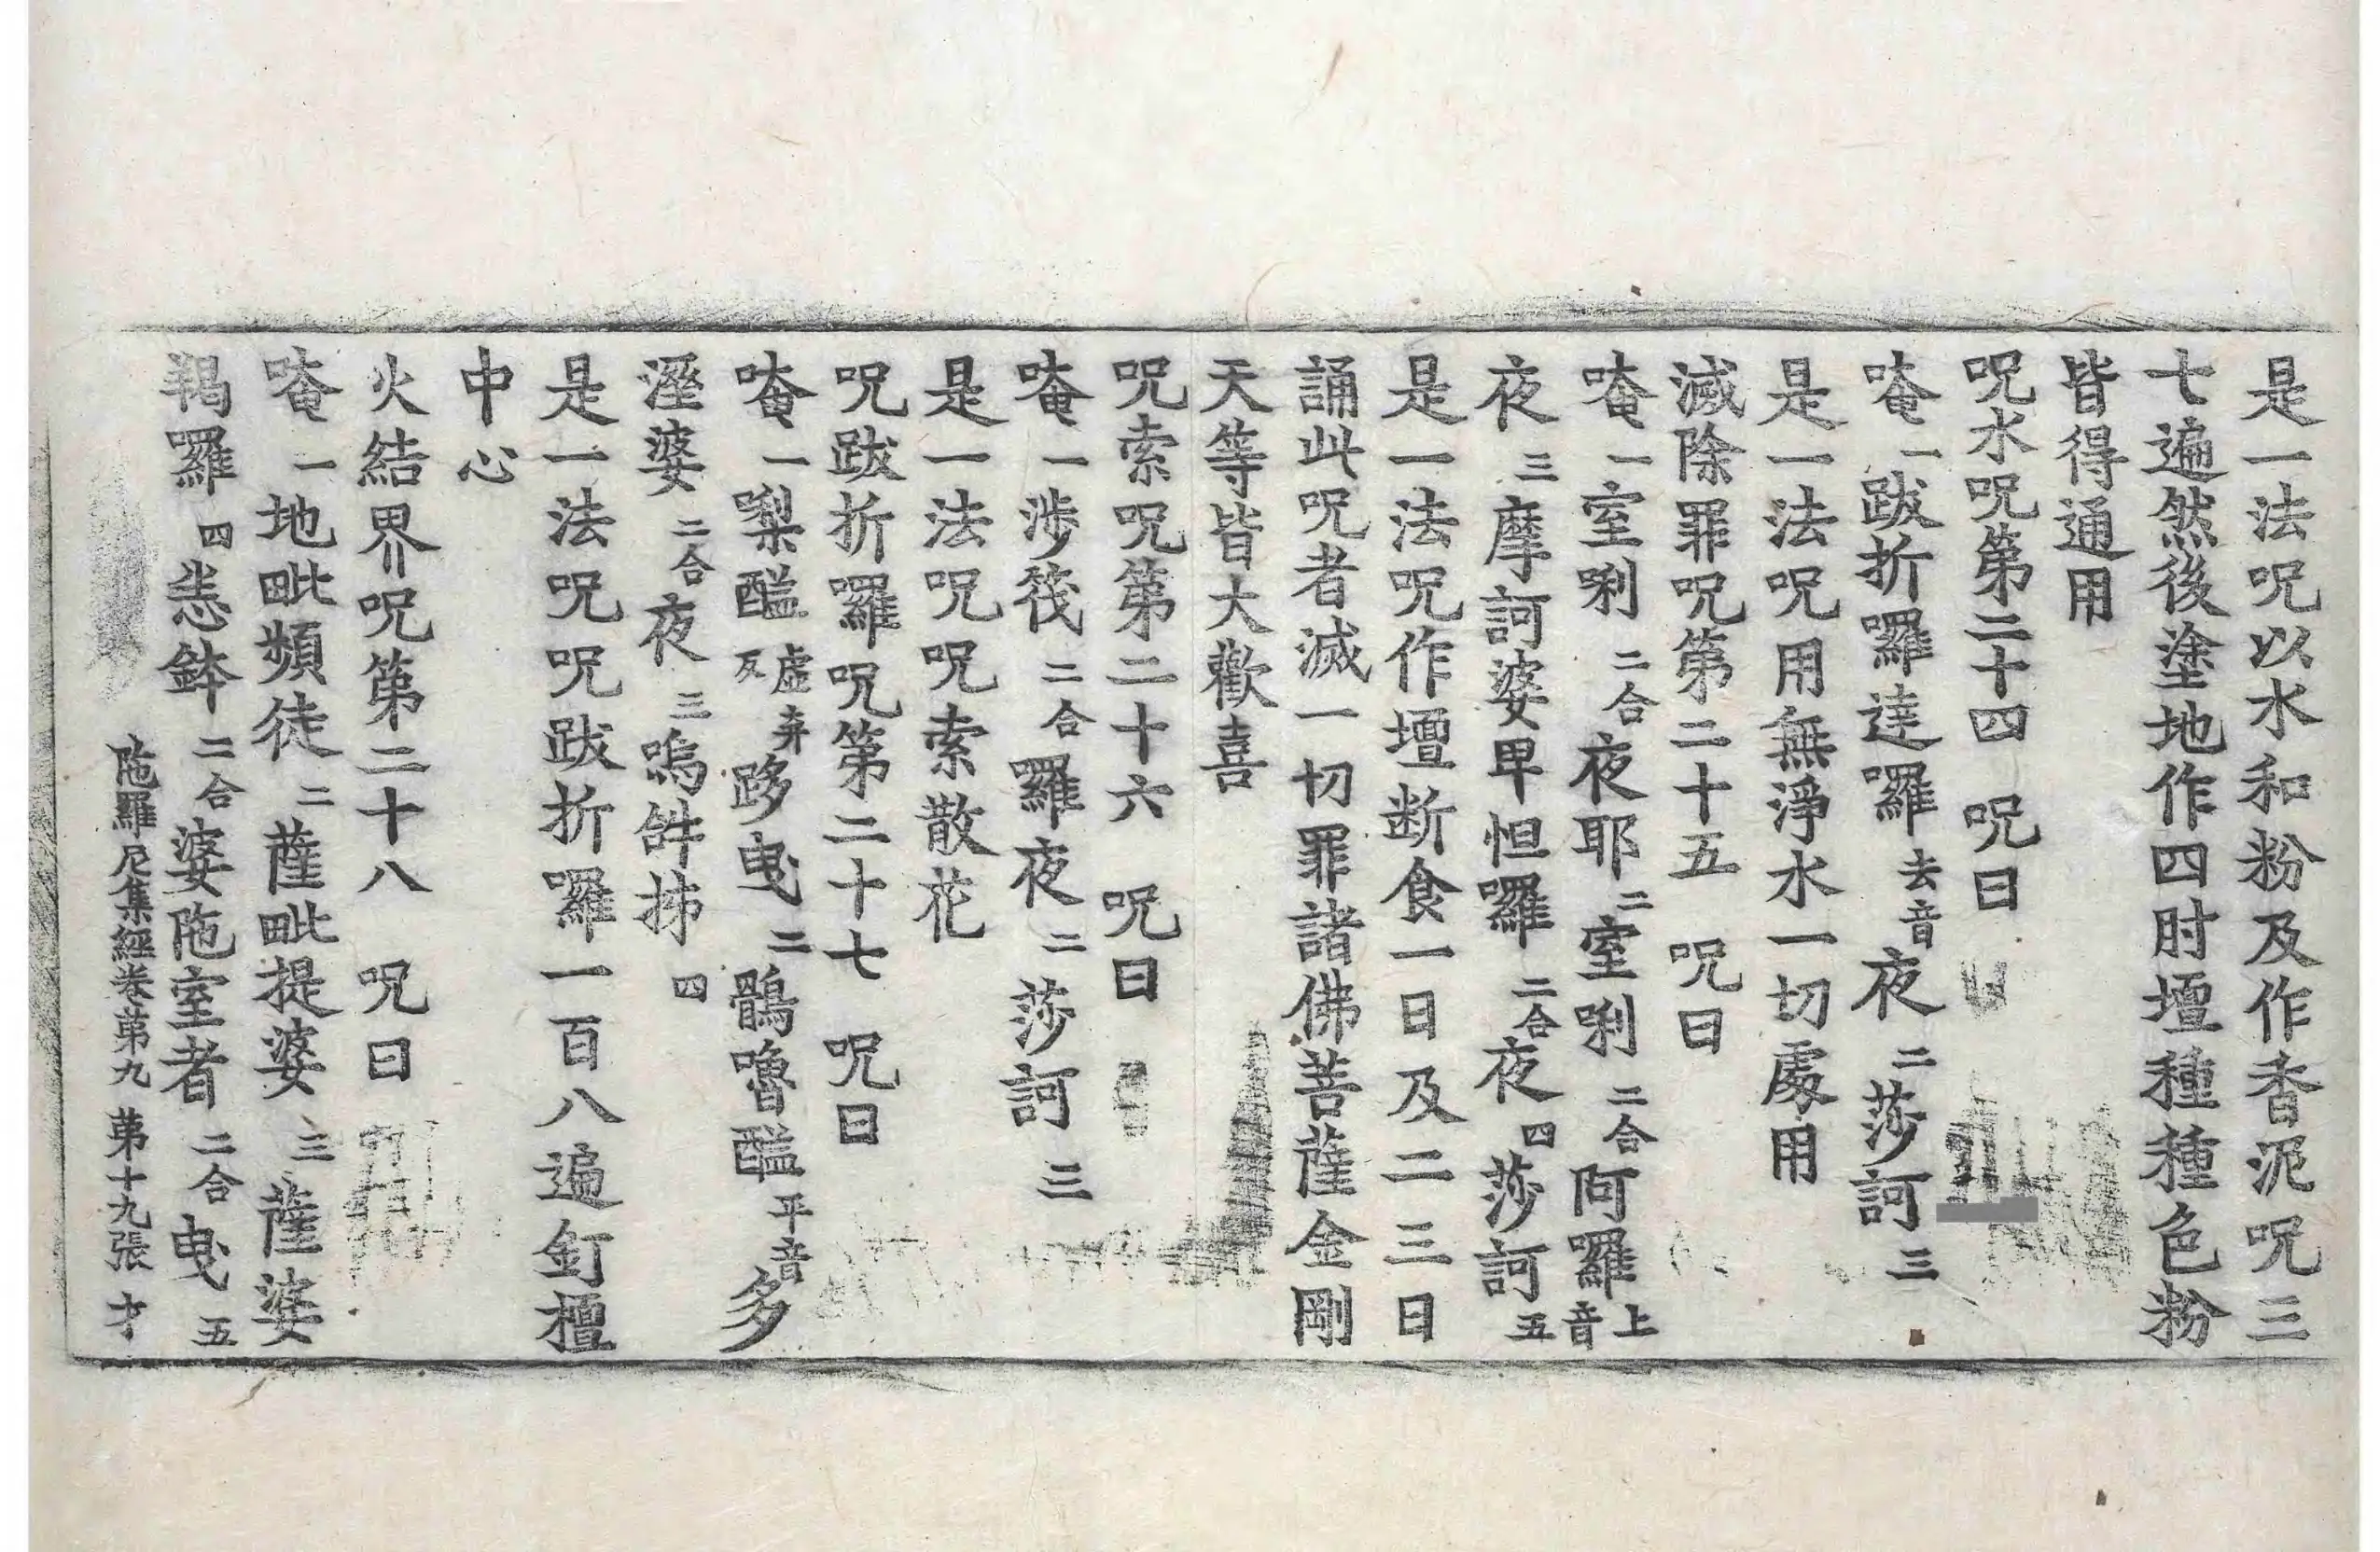 是一法呪以水和粉及作香泥呪三
七遍然後塗地作四肘壇種種色粉
皆得通用
呪水呪第二十四 呪曰
唵一跋折囉達囉去音夜二莎訶三
是一法呪用無淨水一切處用
滅除罪呪第二十五 呪曰
唵一室唎二合夜耶二室唎二合阿囉上音
夜三摩訶婆卑怛囉二合夜四莎訶五
是一法呪作壇断食一日及二三日
誦此呪者滅一切罪諸佛菩薩金剛
天等皆大歡喜
呪索呪第二十六 呪曰
唵一涉筏二合羅夜二莎訶三
是一法呪呪索散花
呪跋折囉呪第二十七 呪曰
唵一㗚醯虛弃反跢曳二鶻嚕醯平音多
溼婆二合夜三嗚𤙖抪四
是一法呪呪跋折囉一百八遍釘檀
中心
火結界呪第二十八 呪曰
唵一地毗頻徒二薩毗提婆三薩婆
羯囉四恙鉢二合婆陁室者二合曳五
陁羅尼集經卷第九 第十九張 才